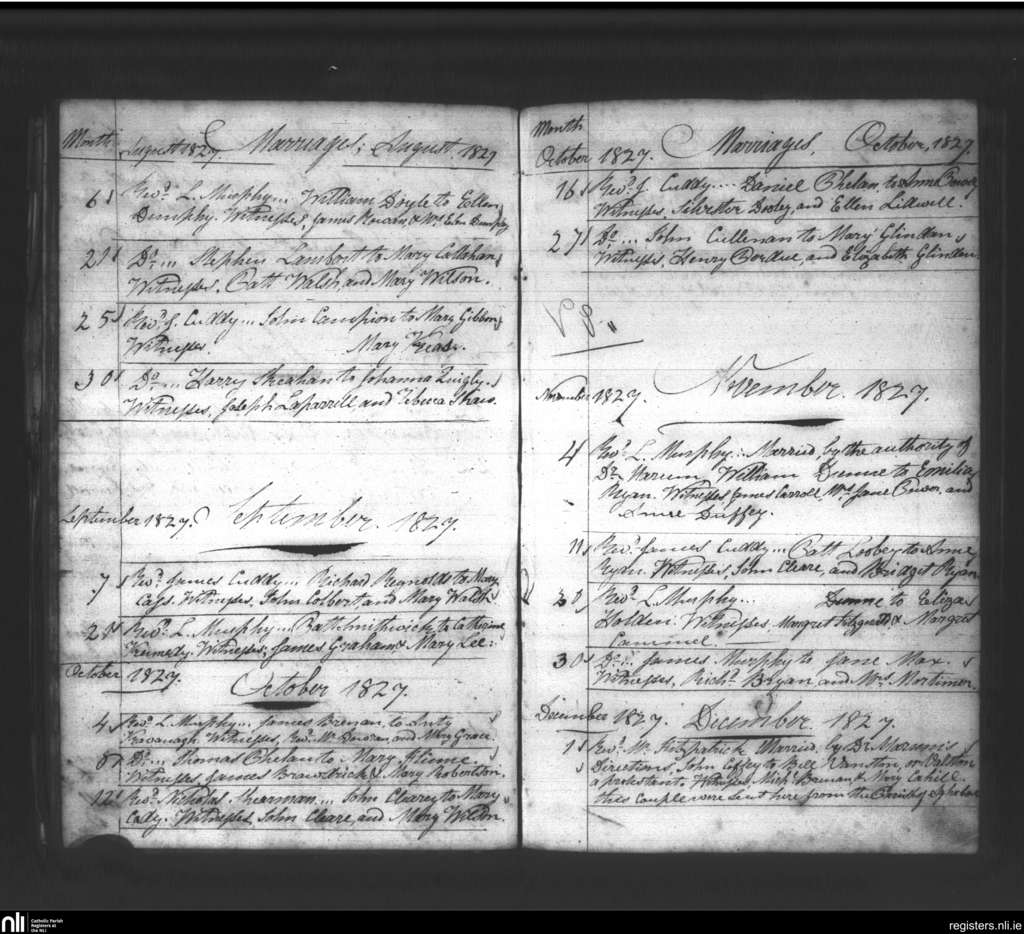 Month
August 1827. Marriages; August 1827
6 Revd. L. Murphy... William Doyle to Ellen
Dunphy. Witnesses, James Rowan, & Mrs. Ellen Dunphy
21 Do... Stephen Lambert to Mary Callahan
Witnesses, Patt Walsh, and Mary Wilson.
25 Revd. J. Cuddy... John Campion to Mary Gibbon
Witnesses. Mary
30 Do... Harry Sheahan to Johanna Quigly.
Witnesses, Joseph and Shaw.
September 1827. September. 1827.
7 Revd. James Cuddy... Richard Reynolds to Mary
Cass. Witnesses, John Colbert, and Mary Walsh.
20 Revd. L. Murphy... Patt Smithwick to Catherine
Kennedy. Witnesses, James Graham & Mary Lee.
October 1827.
October 1827.
4 Revd. L. Murphy... James Brenan, to Anty
Kavanagh. Witnesses, Revd. Mr. and Mary Grace.
8 Do... Thomas Phelan to Mary
Witnesses James & Mary Robertson.
12 Revd. Nicholas Shearman... John Cleary to Mary
Cody. Witnesses, John Cleare, and Mary Wilson.
Month
October 1827. Marriages, October, 1827.
16 Revd. J. Cuddy... Daniel Phelan, to Anne
Witnesses, Silvester Dooley, and Ellen Lidwell.
27 Do... John Cullenan to Mary Glindon
Witness, Henry and Elizabeth Glindon.
November 1827. November. 1827.
4 Revd. L. Murphy... Married, by the authority of
Dr. Marum, William Dunne to Emilia
Ryan. Witnesses, James Carroll, Mrs. Jane Power, and
Anne Duffey.
11 Revd. James Cuddy... Patt Loobey to Anne
Ryan. Witnesses, John Cleare, and Bridget Ryan
30 Revd. L. Murphy... Dunne to Eliza
Holden. Witnesses, Margret Fitzgerald & Margret

30 Do... James Murphy to Jane Max.
Witnesses, Richd. Bryan, and Mrs. Mortimer.
December 1827. December. 1827.
1 Revd. Mr. Fitzpatrick Married, by Dr. Marum's
Directions, John Coffey to Bell or
a Protestant. Witnesses Michl. Brenan & Mary Cahill.
this couple were sent here from the
nli Catholic Parish
Registers at
the NLI
registers.nli.ie